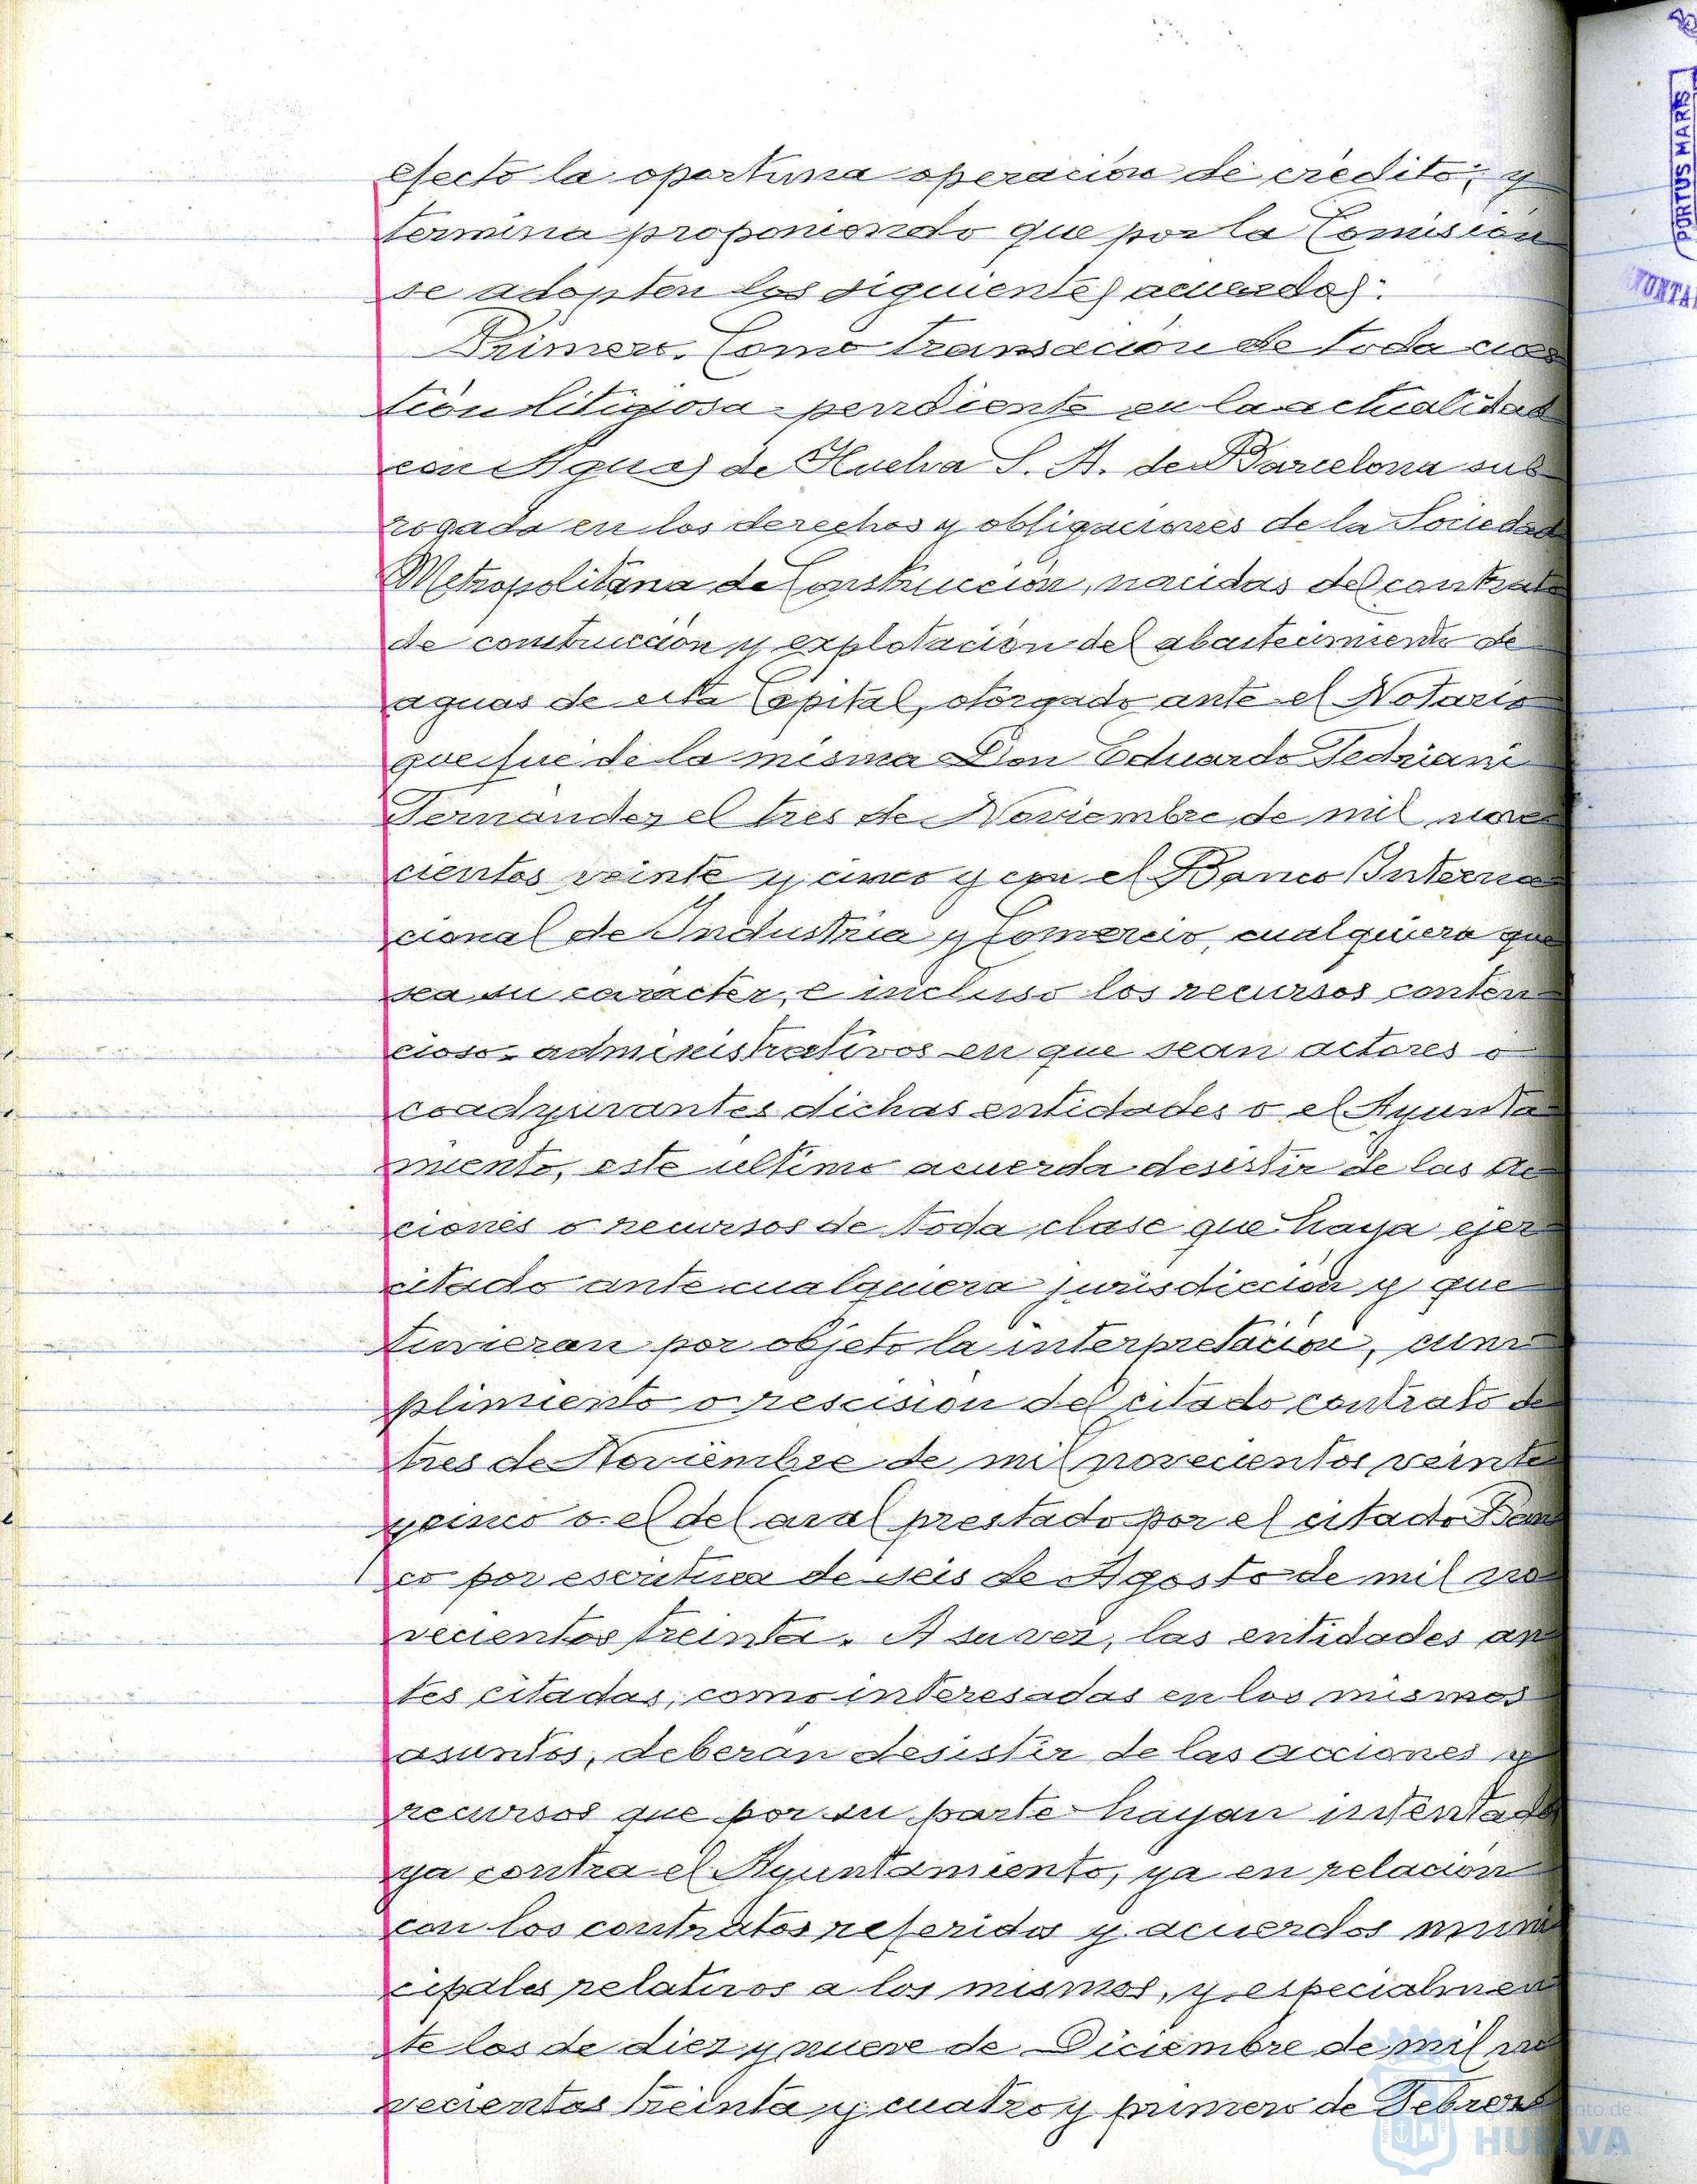 efecto la oportuna operación de crédito; y
termina proponiendo que por la Comisión
se adopten los siguientes acuerdos:
Primero. Como transación de toda cues
tión litigiosa pendiente en la actualidad
con Aguas de Huelva S. A. de Barcelona sub
rogada en los derechos y obligaciones de la Sociedad
Metropolitana de Construcción, nacidas del contrato
de construcción y explotación del abastecimiento de
aguas de esta Capital, otorgado ante el Notario
que fué de la misma Don Eduardo Fedriani
Fernández el tres de Noviembre de mil nove
cientos veinte y cinco y con el Banco Interna
cional de Industria y Comercio, cualquiera que
sea su carácter, e incluso los recursos conten
cioso-administrativos en que sean actores o
coadyuvantes dichas entidades o el Ayunta
miento, este último acuerda desistir de las ac
ciones o recursos de toda clase que haya ejer
citado ante cualquiera jurisdicción y que
tuvieran por objeto la interpretación, cum
plimiento o rescisión del citado contrato de
tres de Noviembre de mil novecientos veinte
y cinco o el del aval prestado por el citado Ban
co por escritura de seis de Agosto de mil no
vecientos treinta. A su vez, las entidades an
tes citadas, como interesadas en los mismos
asuntos, deberán desistir de las acciones y
recursos que por su parte hayan intentado
ya contra el Ayuntamiento, ya en relación
con los contratos referidos y acuerdos muni
cipales relativos a los mismos, y especialmen
te los de diez y nueve de Diciembre de mil no
vecientos treinta y cuatro y primero de Febrero
PORTUS MARIS
HUELVA